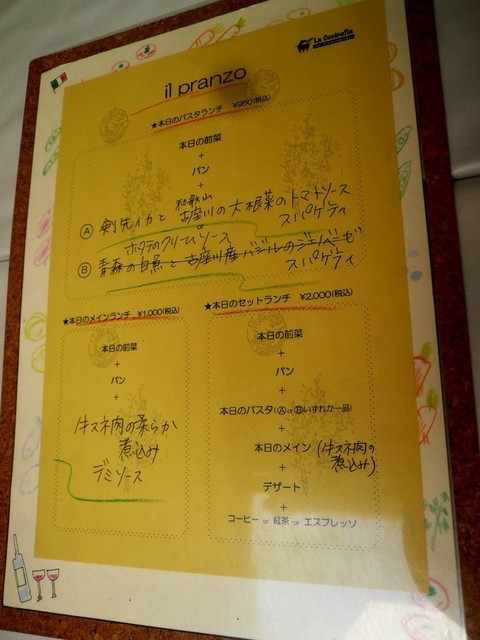 La Cucinetta
il pranzo
★本日のパスタランチ ¥950(税込)
本日の前菜
+
パン
+
和歌山
Ⓐ 剣先イカと古座川の大根菜のトマトソース
スパゲティ
ホタテのクリームソース
Ⓑ 青森の白魚と古座川産バジルのジェノベーゼ
スパゲティ
★本日のメインランチ ¥1,000(税込)
本日の前菜
+
パン
+
牛スネ肉の柔らか
煮込み
デミソース
★本日のセットランチ ¥2,000(税込)
本日の前菜
+
パン
+
本日のパスタ(Ⓐ or Ⓑいずれか一品)
+
本日のメイン (牛スネ肉の
煮込み)
+
デザート
+
コーヒー or 紅茶 or エスプレッソ